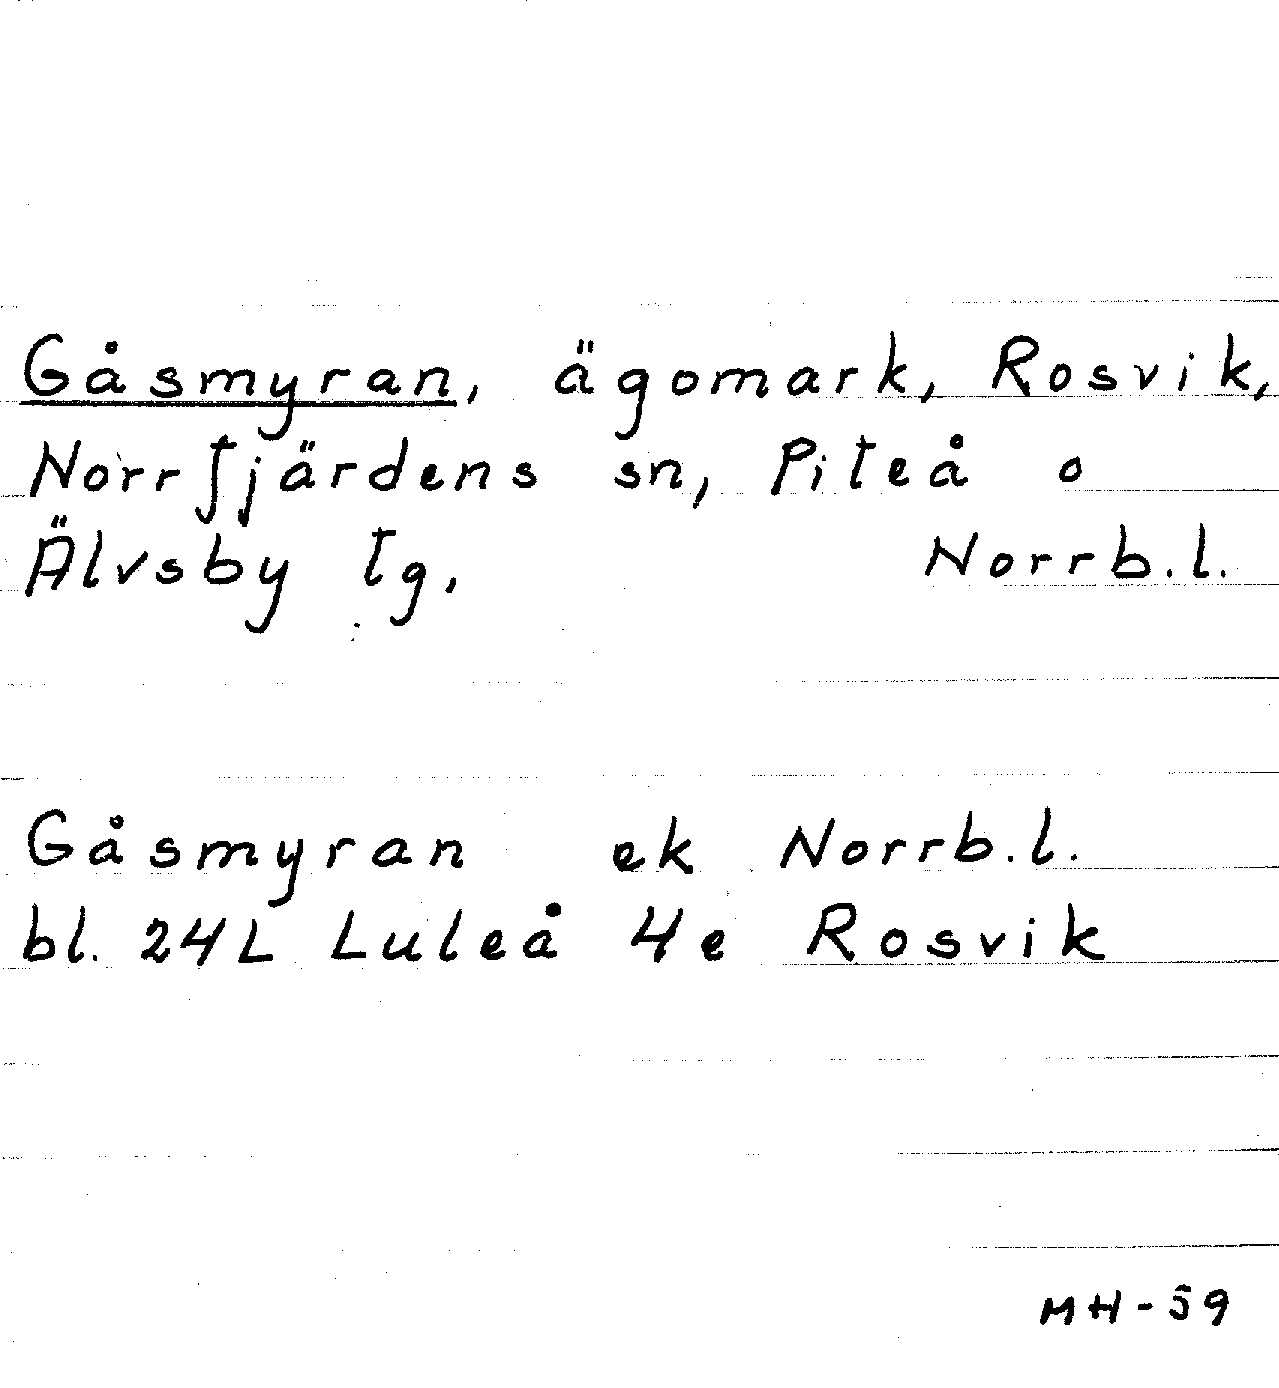 Gåsmyran, ägomark, Rosvik,
Norrfjärdens sn, Piteå o
Älvsby tg. Norrb.l.
Gåsmyran ek Norrb.l.
bl. 24L Luleå 4e Rosvik
MH-59